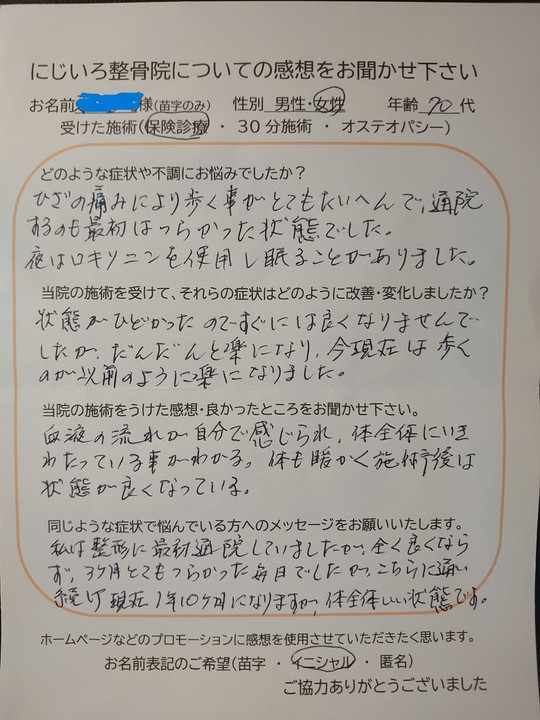 にじいろ整骨院についての感想をお聞かせ下さい
お名前 様(苗字のみ) 性別 男性・女性 年齢 70 代
受けた施術(保険診療 ・ 30分施術 ・ オステオパシー)
どのような症状や不調にお悩みでしたか？
ひざの痛みにより歩く事がとてもたいへんで、通院
するのも最初はつらかった状態でした。
夜はロキソニンを使用し眠ることがありました。
当院の施術を受けて、それらの症状はどのように改善・変化しましたか？
状態がひどかったのですぐには良くなりませんで
したが、だんだんと楽になり、今現在は歩く
のが以前のように楽になりました。
当院の施術をうけた感想・良かったところをお聞かせ下さい。
血液の流れが自分で感じられ、体全体にいき
わたっている事がわかる。体も暖かく施術後は
状態が良くなっている。
同じような症状で悩んでいる方へのメッセージをお願いいたします。
私は整形に最初通院していましたが、全く良くなら
ず、3ヶ月とてもつらかった毎日でしたが、こちらに通い
続け現在1年10ヶ月になりますが、体全体いい状態です。
ホームページなどのプロモーションに感想を使用させていただきたく思います。
お名前表記のご希望(苗字 ・ イニシャル ・ 匿名)
ご協力ありがとうございました